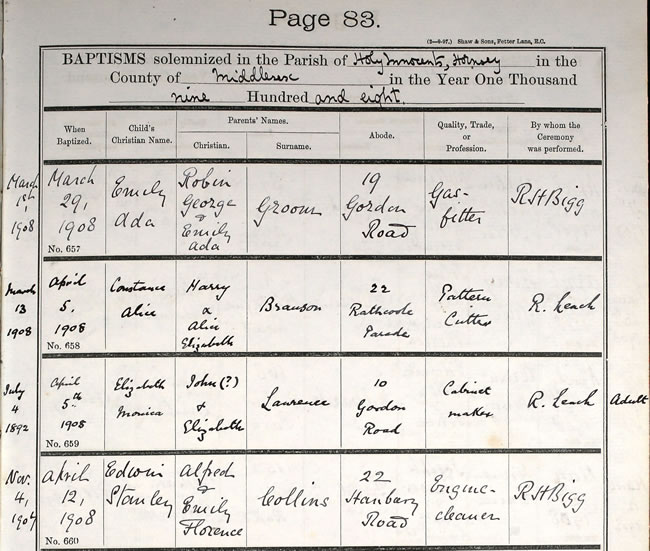 Page 83.
(3—8-97.) Shaw & Sons, Fetter Lane, E.C.
BAPTISMS solemnized in the Parish of Holy Innocents, Hornsey in the
County of Middlesex in the Year One Thousand
nine Hundred and eight.
When Baptized.
Child's Christian Name.
Parents' Names.
Christian.
Surname.
Abode.
Quality, Trade, or Profession.
By whom the Ceremony was performed.
March
1st,
1908
March
29,
1908
No. 657
Emily
Ada
Robin
George
&
Emily
Ada
Groom
19
Gordon
Road
Gas-
fitter
RHBigg
March
13
1908
April
5,
1908
No. 658
Constance
Alice
Harry
&
Alice
Elizabeth
Branson
22
Rathcoole
Parade
Pattern
Cutter
R. Leach
July
4
1892
April
5th
1908
No. 659
Elizabeth
Monica
John (?)
&
Elizabeth
Lawrence
10
Gordon
Road
Cabinet
maker
R. Leach
Adult
Nov.
4,
1907
April
12,
1908
No. 660
Edwin
Stanley
Alfred
&
Emily
Florence
Collins
22
Hanbury
Road
Engine-
cleaner
RHBigg